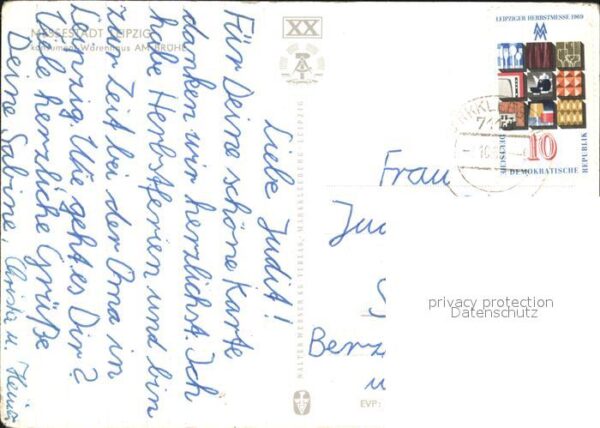 MESSESTADT LEIPZIG
konsument-Warenhaus AM BRÜHL
XX
Liebe Judit!
Für Deine schöne Karte
danken wir herzlichst. Ich
habe Herbstferien und bin
zur Zeit bei der Oma in
Leipzig. Wie geht es Dir?
Viele herzliche Grüße
Deine Sabine, Christa u. Heinz
WALTER WERNER KG VERLAG, MARKKLEEBERG LEIPZIG
EVP:
LEIPZIGER HERBSTMESSE 1969
MM
10
DEUTSCHE DEMOKRATISCHE REPUBLIK
711
10
Frau
Ju
Berz
u
privacy protection
Datenschutz